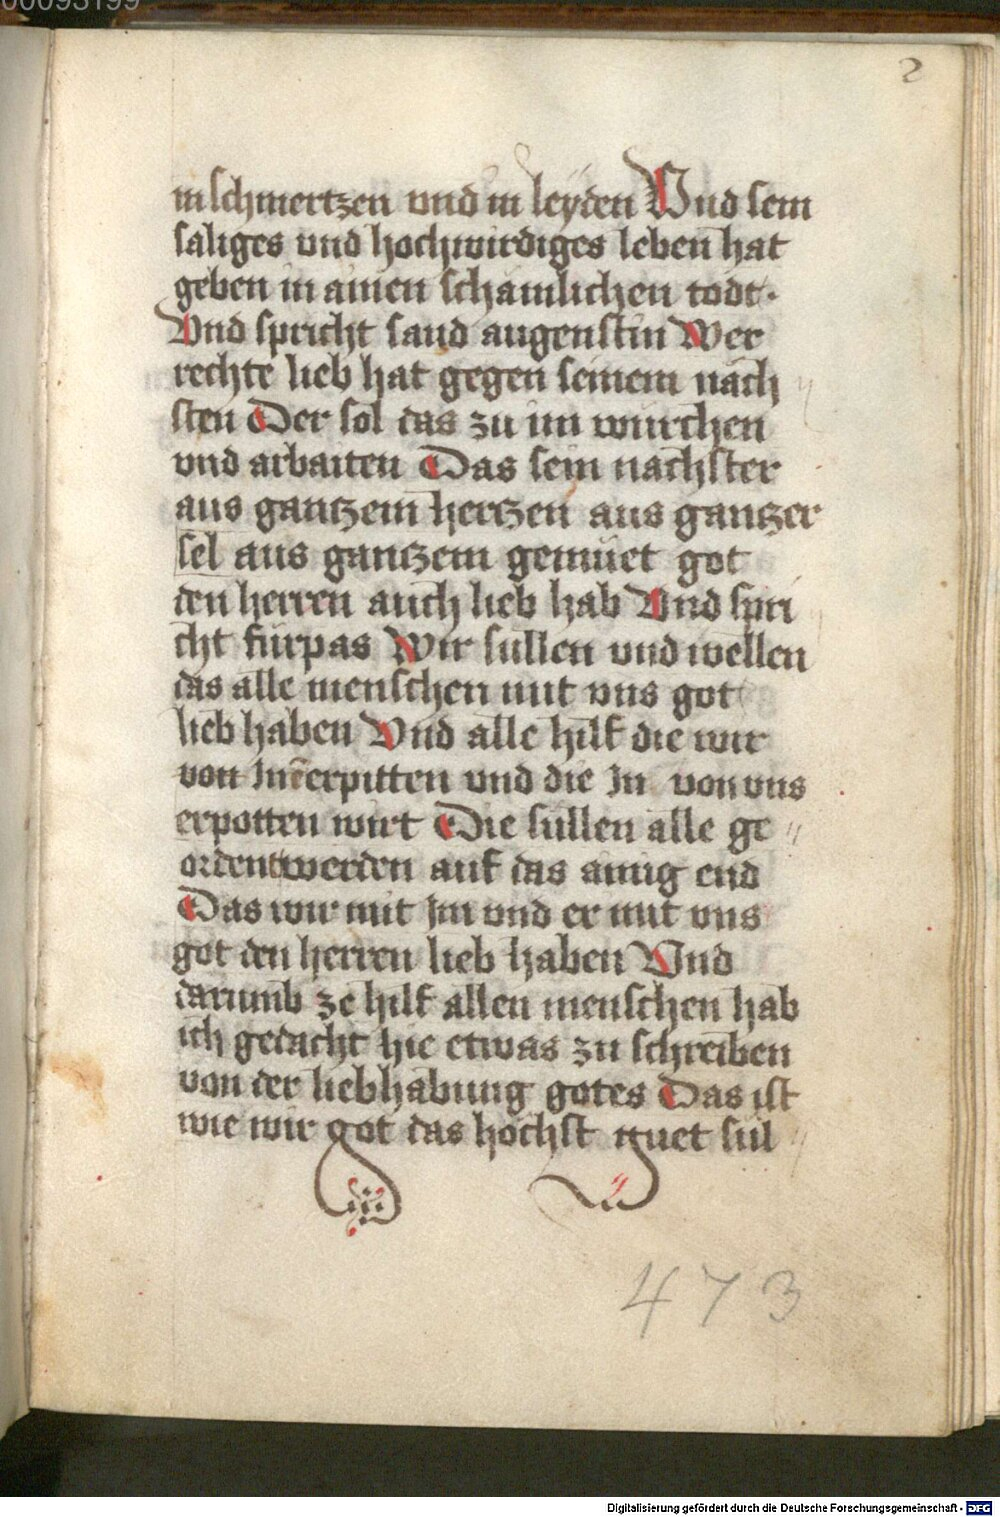 00093199
2
in schmertzen vnd in leyden Vnd sein
saliges vnd hochwirdiges leben hat
geben in ainen schamlichen todt·
Vnd spricht sand augenstin Wer
rechte lieb hat gegen seinem näch
sten Der sol das zu im wurchen
vnd arbaiten Das sein nachster
aus gantzem hertzen aus gantzer
sel aus gantzem gemüet got
den herren auch lieb hab Vnd spri
cht fürpas Wir süllen vnd wellen
das alle menschen mit vns got
lieb haben Vnd alle hilf die wir
von In erpitten vnd die In von vns
erpotten wirt Die süllen alle ge
ordent werden auf das ainig end
Das wir mit Im vnd er mit vns
got den herren lieb haben Vnd
darumb ze hilf allen menschen hab
ich gedacht hie etwas zu schreiben
von der liebhabung gotes Das ist
wie wir got das höchst guet sül
473
Digitalisierung gefördert durch die Deutsche Forschungsgemeinschaft - DFG